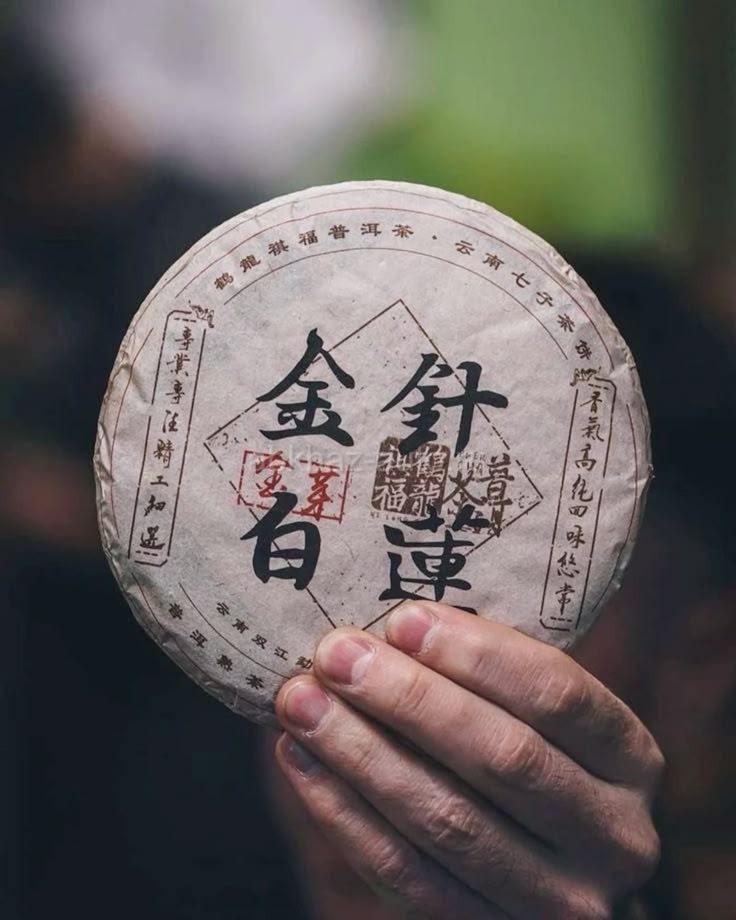 鶴龍祺福普洱茶·云南七子茶
專業專注精工細選
金針
白蓮
金芽
祺福
鶴龍
茶
章
香氣高純回味悠常
云南双江勐
普洱熟茶